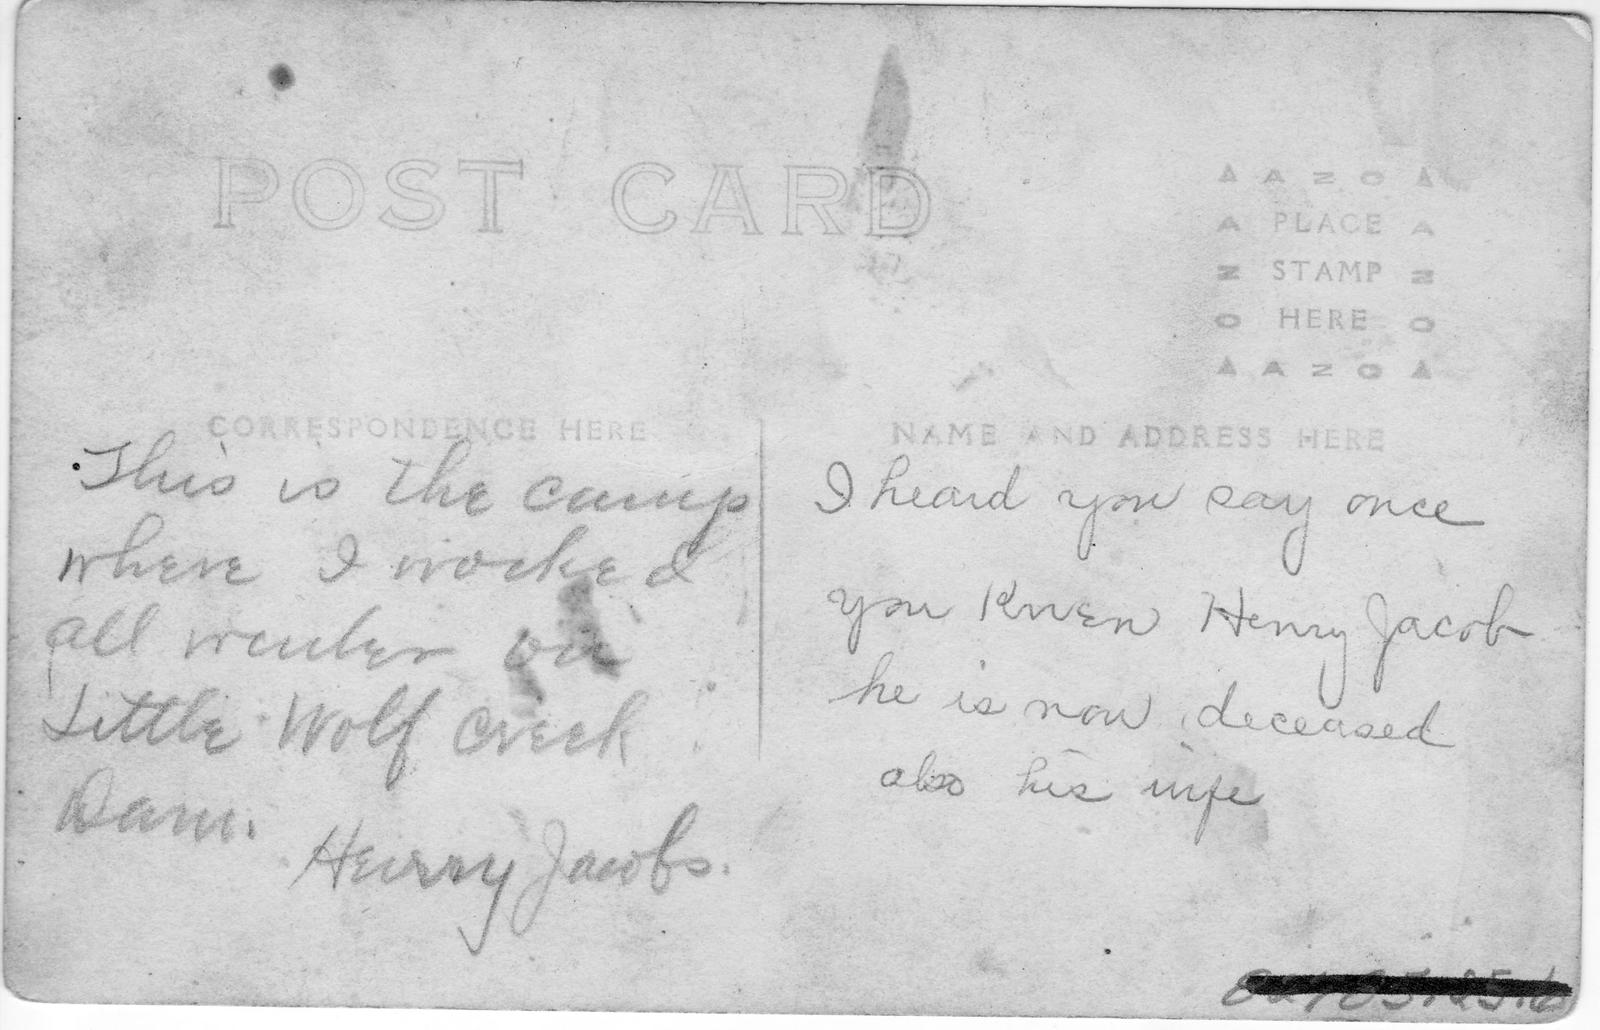 POST CARD
▲ A Z O ▲
A PLACE A
Z STAMP Z
O HERE O
▲ A Z O ▲
CORRESPONDENCE HERE
This is the camp
where I worked
all winter on
Little Wolf Creek
Dam.
Henry Jacobs.
NAME AND ADDRESS HERE
I heard you say once
you Knew Henry Jacob
he is now deceased
also his wife